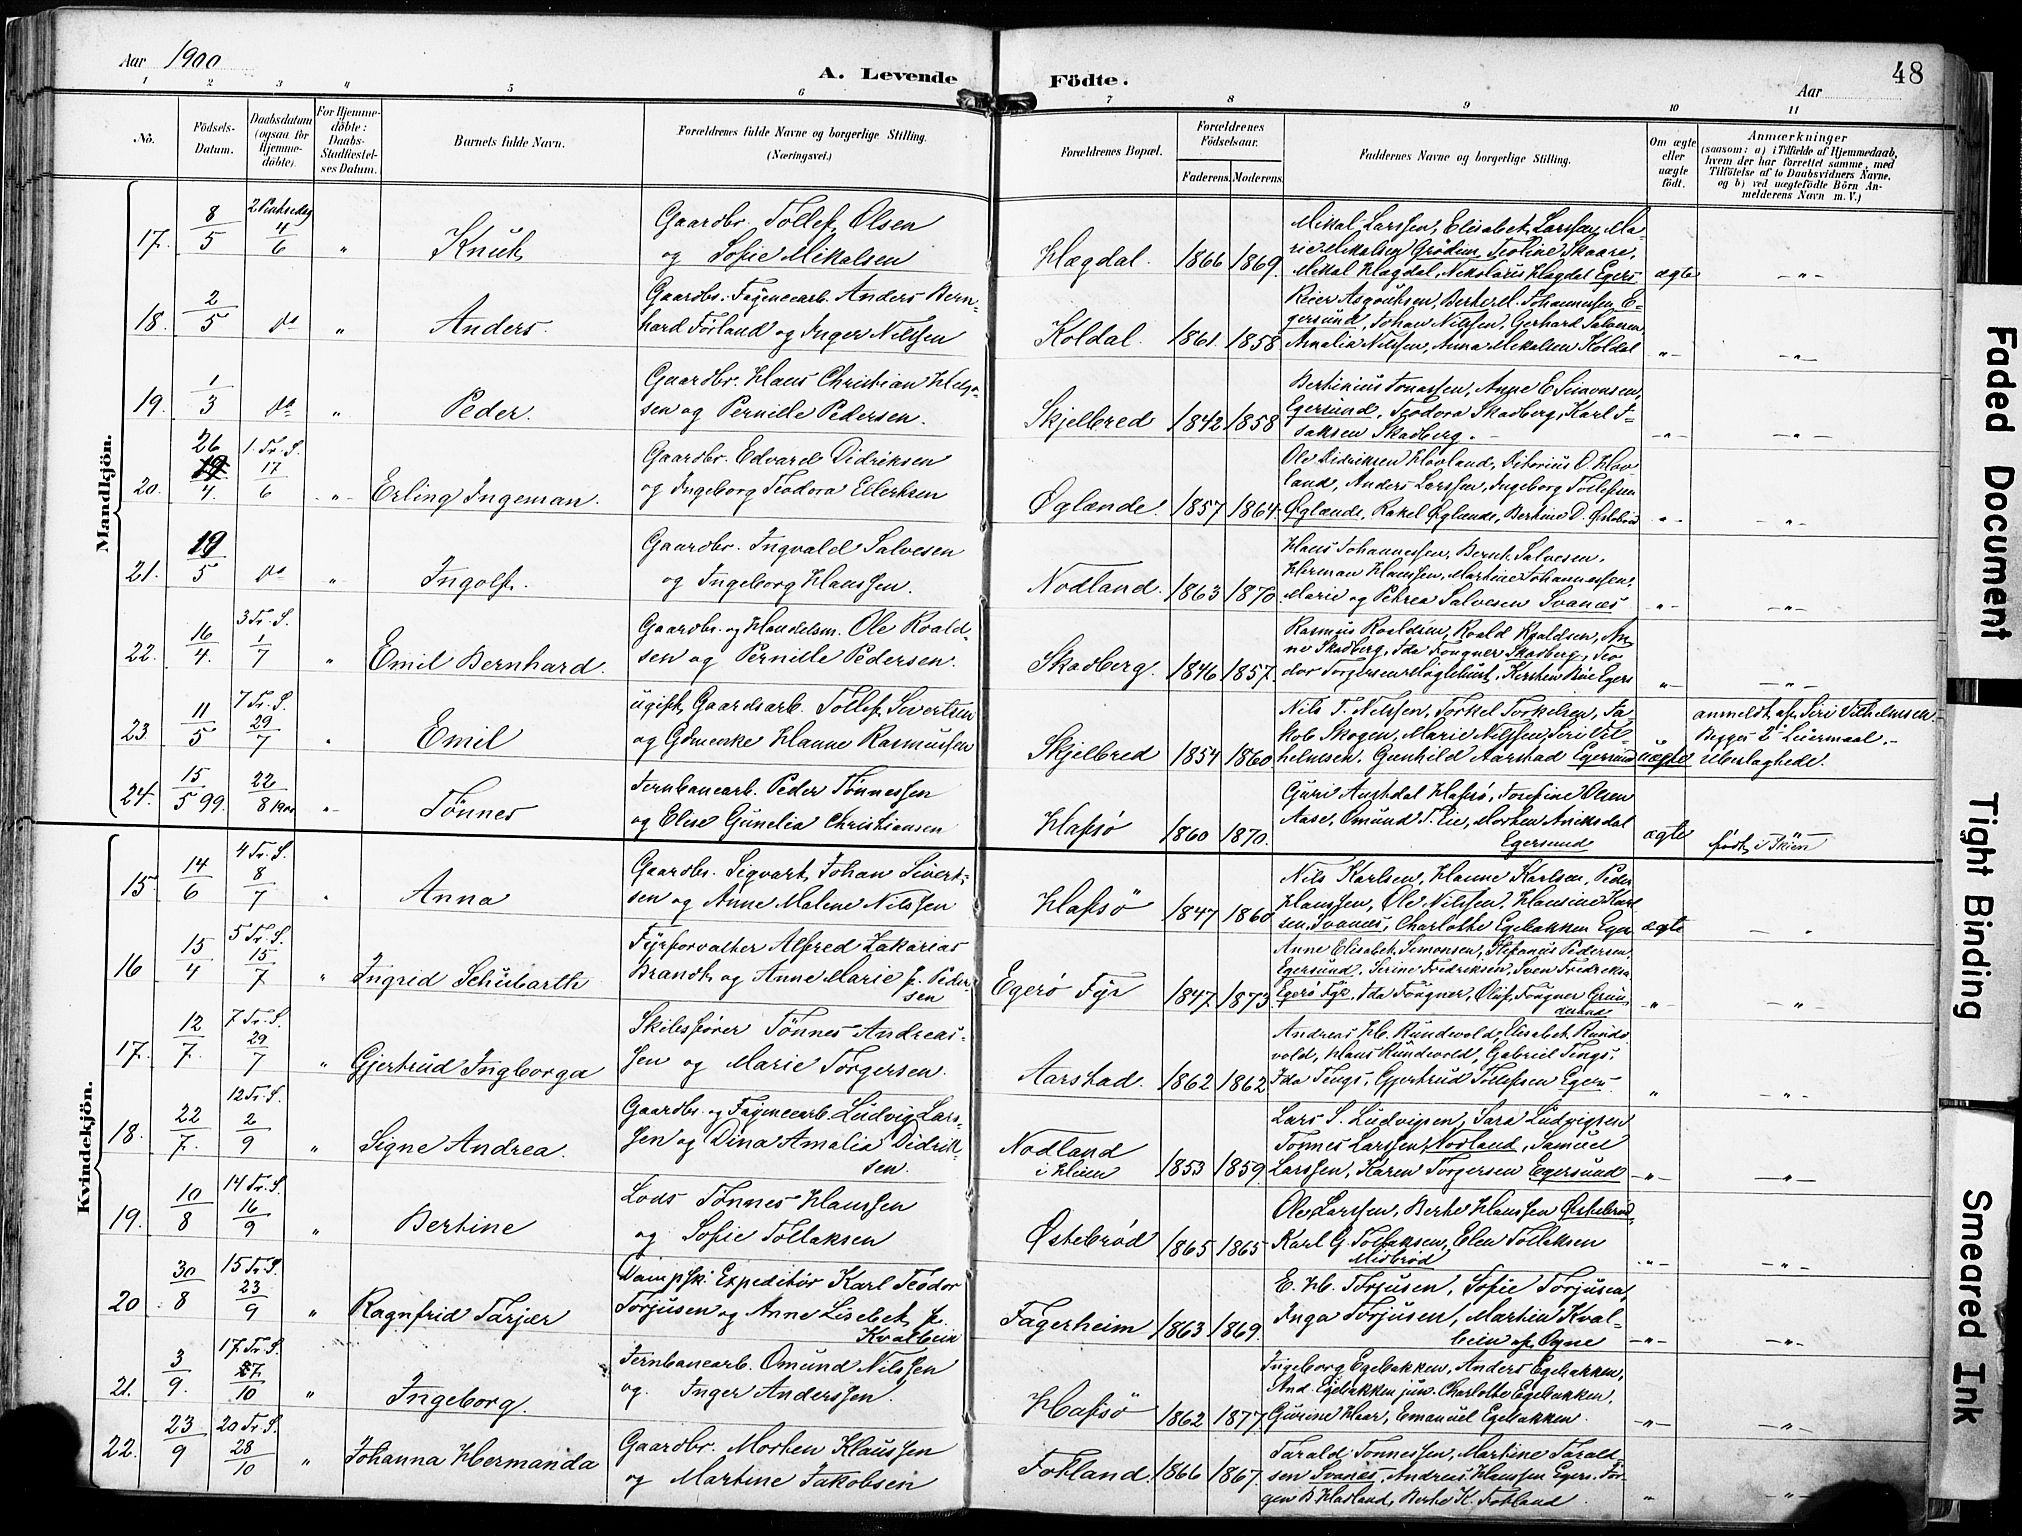 Aar 1900
A. Levende Födte.
Aar
48
1 2 3 " 5 6 7 8 9 10 11
No.
Födsels-
Datum.
Daabsdatum
(ogsaa for
Hjemme-
döbte).
For Hjemme-
döbte:
Daabs-
Stadfæstel-
ses Datum.
Barnets fulde Navn.
Forældrenes fulde Navne og borgerlige Stilling.
(Næringsvei.)
Forældrenes Bopæl.
Forældrenes
Födselsaar.
Faderens. Moderens.
Faddernes Navne og borgerlige Stilling.
Om ægte
eller
uægte
födt.
Anmærkninger
(saasom: a) i Tilfælde af Hjemmedaab,
hvem der har forrettet samme, med
Tilföielse af to Daabsvidners Navne,
og b) ved uægtefödte Börn An-
melderens Navn m. V.)
Mandkjön.
17. 8/5 2 Pintsedag 4/6 " Knut
Gaardbr. Tollef Olsen
og Sofie Mikalsen
Hægdal. 1866 1869.
Mikal Larssen, Elisabet Larssen, Ma-
rie Mikalsen Grødem, Teoline Skaare,
Mikal Hægdal, Nikolaus Hægdal Egers
ægte —"—
18. 2/5 do " Anders.
Gaardbr. Fayencearb. Anders Bern-
hard Forland og Inger Nilssen
Koldal. 1861. 1858
Reier Asgautsen, Berte M. Johannessen, E-
gersund, Johan Nilssen, Gerhard Salvesen,
Amalia Nilssen, Anna Mikalsen Koldal
—"— —"—
19. 1/3 do " Peder.
Gaardbr. Hans Christian Helge-
sen og Pernille Pedersen.
Skjelbred 1842 1858
Bertinius Jonassen, Anne E Simonsen,
Egersund, Teodora Skadberg, Karl I-
saksen Skadberg.
—"— —"—
20. 26/4 1. Tr. S. 17/6 —"— Erling Ingeman.
Gaardbr. Edvard Didriksen
og Ingeborg Teodora Eilertsen
Øglænde 1857 1864.
Ole Didriksen Hovland, Ditorius O. Hov
land, Anders Larssen, Ingeborg Tollefsen
Øglænde, Rakel Øglænde, Bertine D. Østebrød
—"— —"—
21. 19/5 do " Ingolf.
Gaardbr. Ingvald Salvesen
og Ingeborg Hanssen.
Nodland. 1863 1870
Hans Johannessen, Bernt Salvesen,
Herman Hanssen, Martine Johannessen,
Marie og Petrea Salvesen Svanæs
—"— —"—
22. 16/4. 3 Tr. S. 1/7 " Emil Bernhard.
Gaardbr. og Handelsm. Ole Roald-
sen og Pernille Pedersen.
Skadberg. 1846 1857.
Rasmus Roaldsen, Roald Roaldsen, An-
ne Skadberg, Ida Fougner Skadberg, Teo-
dor Torgersen Møgletveit, Kersten Bøe Egers
—"— —"—
23. 11/5 7 Tr. S. 29/7 " Emil
ugift Gaardsarb. Tollef Sivertsen
og Gdmenke Hanne Rasmussen
Skjelbred 1854 1860
Nils T. Nilssen, Torkel Torkelsen, Ja-
kob Skogen, Marie Nilssen Siri Vil-
helmsen, Gunhild Aarstad Egersund
uægte
anmeldt af Siri Vilhelmsen.
Begges 2det Leiermaal.
Ubeslægtede.
24. 15/5 99. 22/8 1900 —"— Tønnes
Jernbanearb. Peder Tønnessen
og Elese Gunelia Christiansen
Hafsø 1860 1870.
Guri Austdal Hafsø, Josefine Olsen
Aase, Omund T. Eie, Morten Aniksdal
Egersund
ægte
født i Skien
Kvindekjön.
15. 14/6 4 Tr. S. 8/7 " Anna
Gaardbr. Sigvart Johan Sivert-
sen og Anne Malene Nilssen
Hafsø 1847 1860
Nils Karlsen, Hanne Karlsen, Peder
Hanssen, Ole Nilssen, Hansine Karl
sen Svanæs, Charlotte Egebakken Eger
ægte — "
16 15/4 5 Tr. S. 15/7 " Ingrid Schubarth
Fyrforvalter Alfred Zakarias
Brandt og Anne Marie f. Peder-
sen
Egerø Fyr 1847. 1873.
Anne Elisabet Simonsen, Stefanus Pedersen,
Egersund, Serine Fredriksen, Sven Fredriksen
Egerø Fyr, Ida Fougner, Oluf Fougner Grun-
destad
" "
17. 12/7. 7 Tr. S. 29/7 " Gjertrud Ingborga
Skibsfører Tønnes Andreas-
sen og Marie Torgersen.
Aarstad. 1862 1862
Andreas Hb. Rundvold, Elisabet Runds
vold, Hans Rundvold, Gabriel Tengs,
Ida Tengs, Gjertrud Tollefsen Egers
" —"—
18. 22/7. 12 Tr. S. 2/9 " Signe Andrea.
Gaardbr. og Fayencearb. Ludvig Lars-
sen og Dina Amalia Didrik-
sen.
Nodland
i Heien 1853 1859.
Lars S. Ludvigsen, Sara Ludvigsen
Tønnes Larssen, Nodland, Samuel
Larssen, Karen Torgersen Egersund
—"— —"—
19. 10/8 14 Tr. S. 16/9 " Bertine
Lods Tønnes Hanssen
og Sofie Tollaksen
Østebrød 1865 1865
Ole Larssen, Berte Hanssen Østebrød,
Karl G. Tollaksen, Elen Tollaksen
Midbrød
—"— —"—
20 30/8 15 Tr. S. 23/9 " Ragnfrid Tarjær
Dampsk. Expeditør Karl Teodor
Torjusen og Anne Lisebet f.
Kvalbein
Fagerheim 1863 1869.
E. Hb. Torjusen, Sofie Torjusen,
Inga Torjusen, Martin Kval-
bein af Ogne
—"— —"—
21. 3/9. 17. Tr. S. 7/10 " Ingeborg.
Jernbanearb. Omund Nilssen
og Inger Anderssen.
Hafsø 1862 1877
Ingeborg Egebakken, Anders Egebakken,
And. Egebakken jun. Charlotte Egebakken,
Gurine Haar, Emanuel Egebakken.
" —"—
22. 23/9 20 Tr. S. 28/10 " Johanna Hermanda
Gaardbr. Morten Klaussen
og Martine Jakobsen
Fotland. 1866 1867.
Tarald Tønnessen, Martine Tarald-
sen Svanæs, Andreas Hanssen Egers. Tor-
gen B Hadland, Berte K. Fotland
" —"—
Faded Document
Tight Binding
Smeared Ink